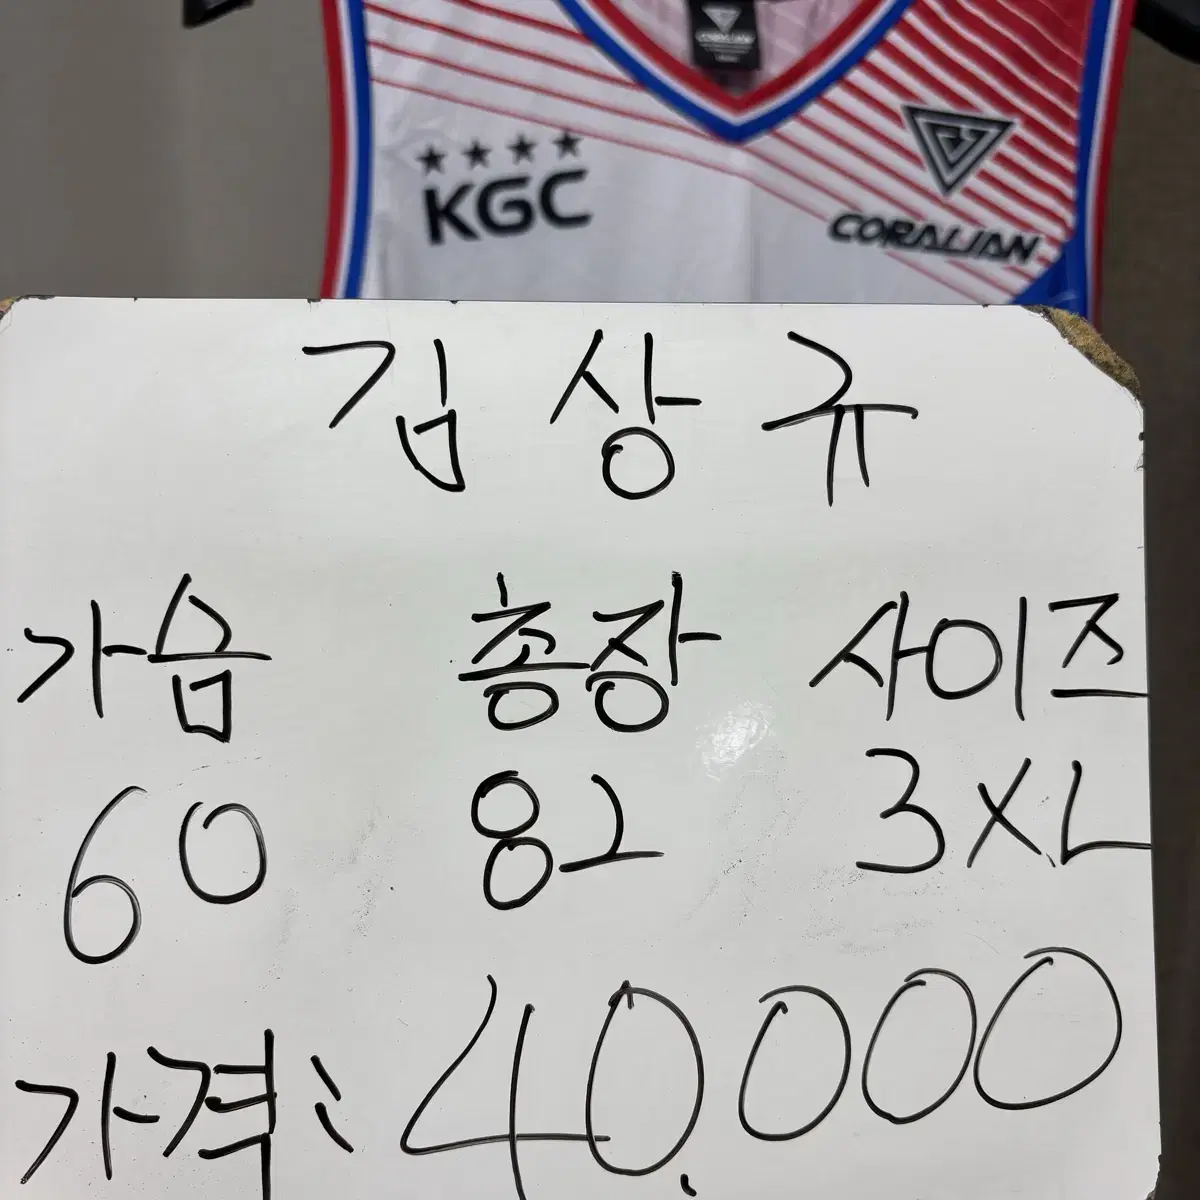 CORALIAN
★★★★
KGC
CORALIAN
김상규
가슴 총장 사이즈
60 82 3XL
가격: 40,000